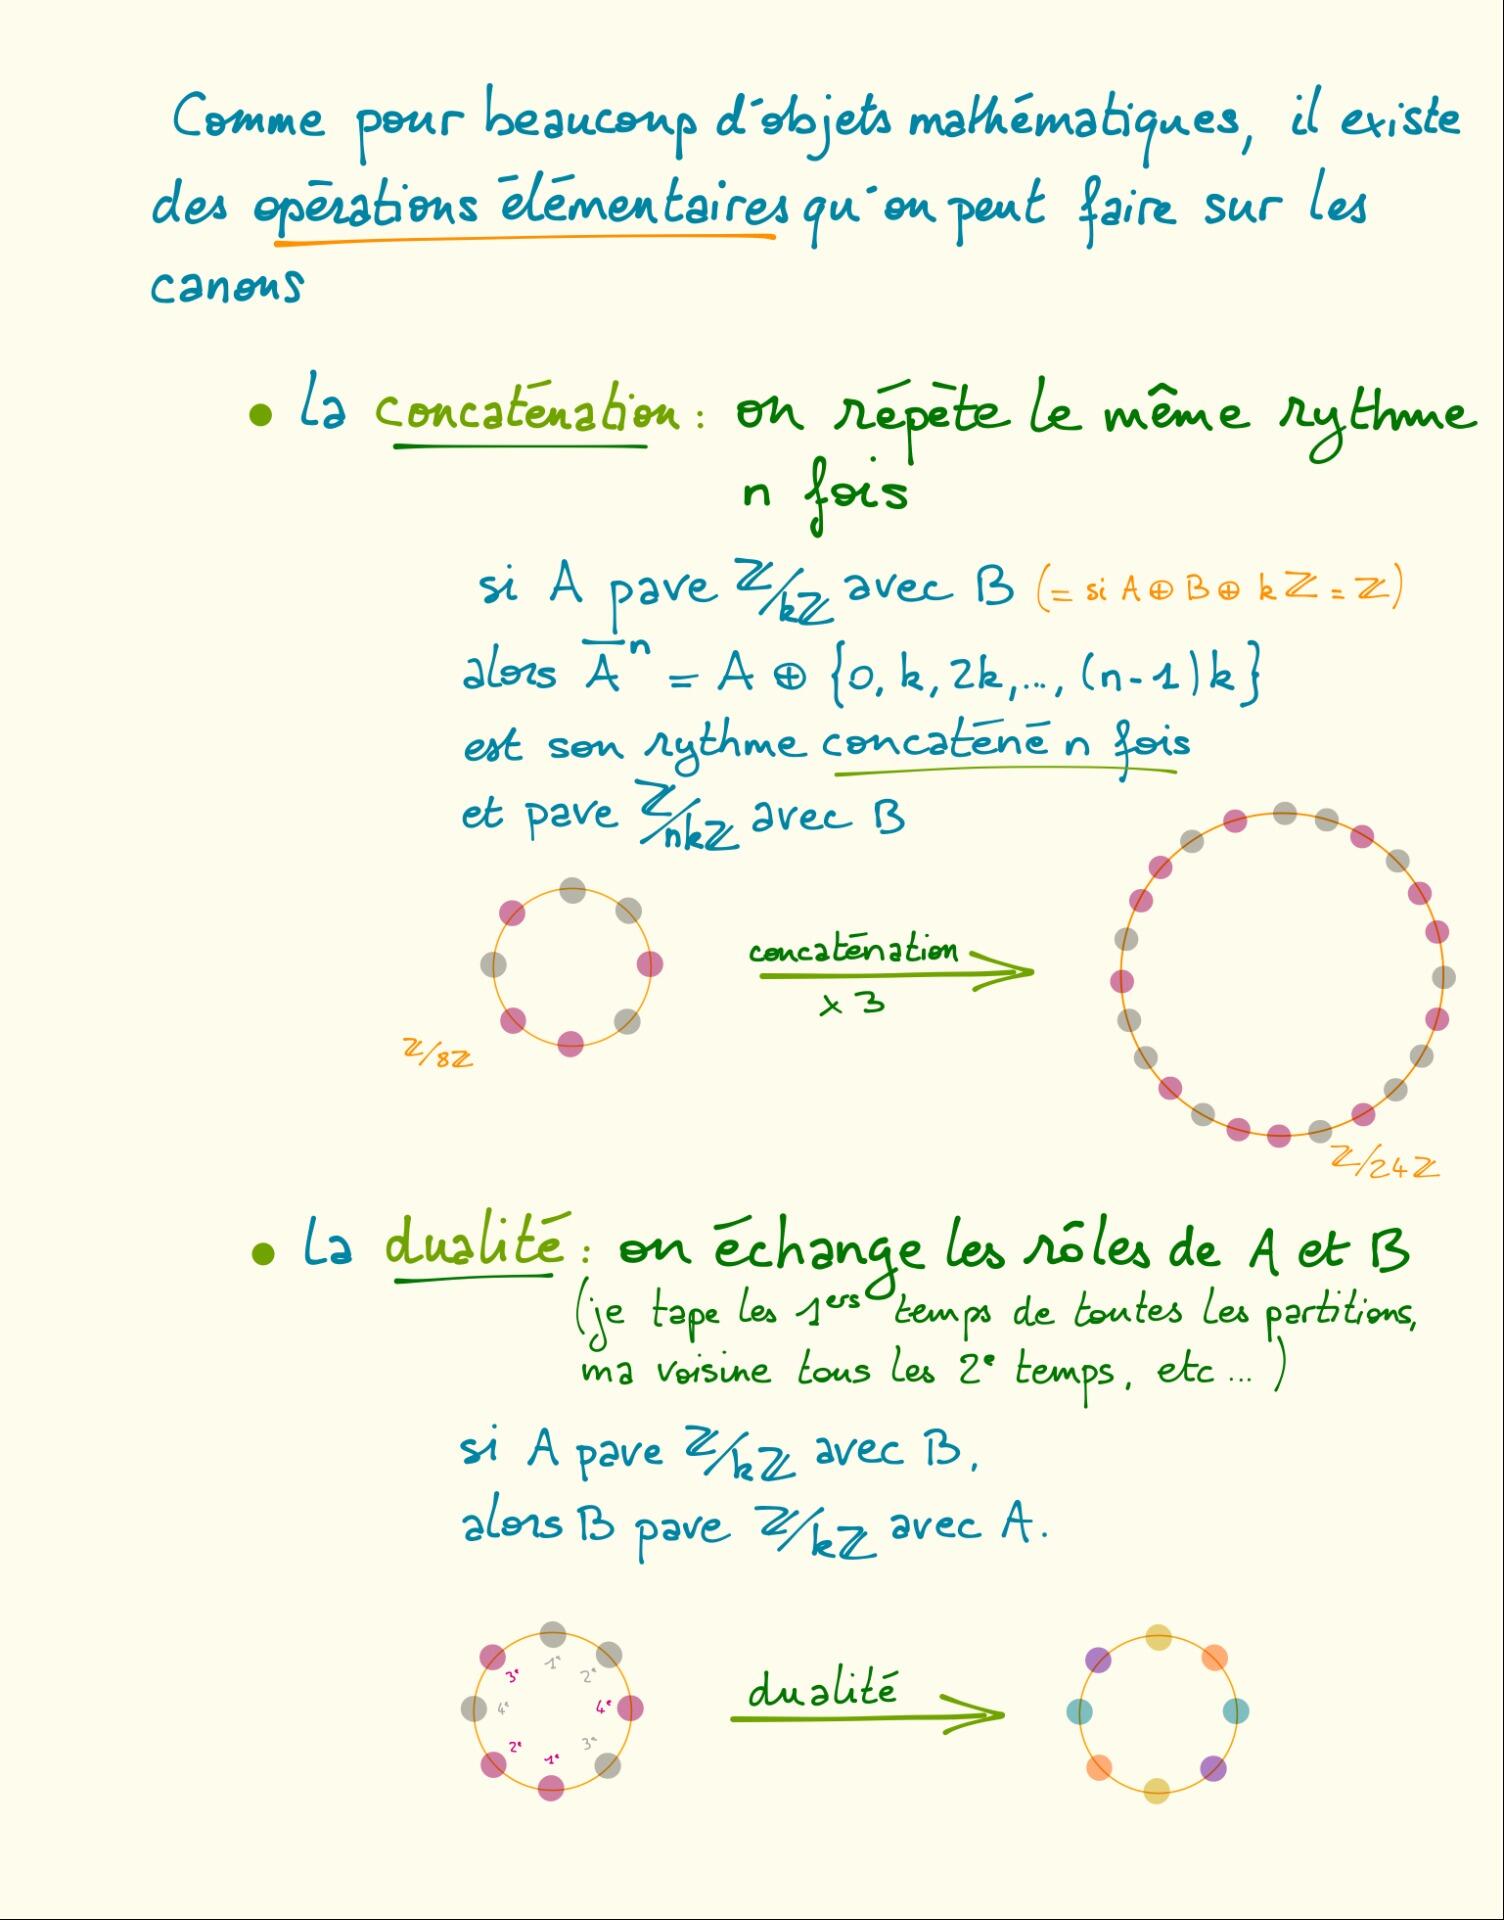 Comme pour beaucoup d'objets mathématiques, il existe
des opérations élémentaires qu'on peut faire sur les
canons
• La concaténation : on répète le même rythme
n fois
si A pave ℤ/kℤ avec B (= si A ⊕ B ⊕ kℤ = ℤ)
alors A̅ⁿ = A ⊕ {0, k, 2k, ..., (n-1)k}
est son rythme concaténé n fois
et pave ℤ/nkℤ avec B
concaténation
x 3
ℤ/8ℤ
ℤ/24ℤ
• La dualité : on échange les rôles de A et B
(je tape les 1ers temps de toutes les partitions,
ma voisine tous les 2e temps, etc ... )
si A pave ℤ/kℤ avec B,
alors B pave ℤ/kℤ avec A.
1e
3e 2e
4e 4e
2e 3e
1e
dualité